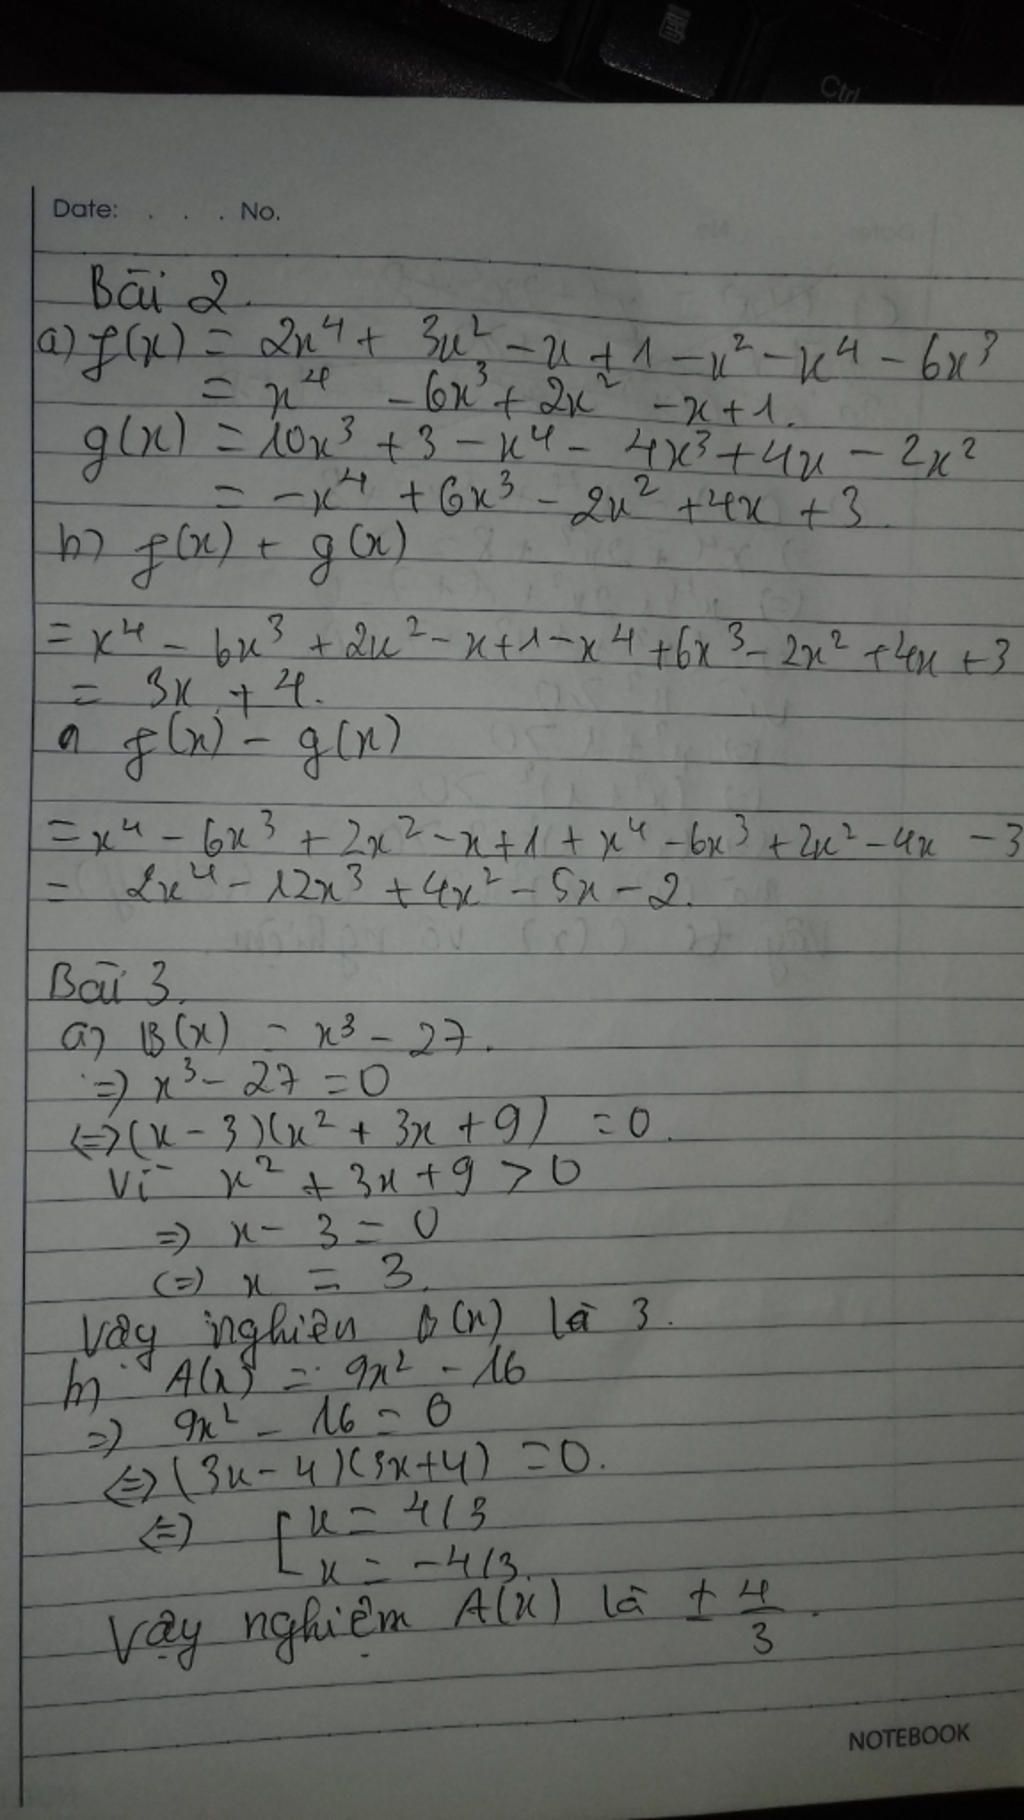 Ctrl
Date: . . . No.
Bài 2.
a) f(x) = 2x⁴ + 3x² - x + 1 - x² - x⁴ - 6x³
= x⁴ - 6x³ + 2x² - x + 1.
g(x) = 10x³ + 3 - x⁴ - 4x³ + 4x - 2x²
= -x⁴ + 6x³ - 2x² + 4x + 3
b) f(x) + g(x)
= x⁴ - 6x³ + 2x² - x + 1 - x⁴ + 6x³ - 2x² + 4x + 3
= 3x + 4.
f(x) - g(x)
= x⁴ - 6x³ + 2x² - x + 1 + x⁴ - 6x³ + 2x² - 4x - 3
= 2x⁴ - 12x³ + 4x² - 5x - 2.
Bài 3.
a) B(x) = x³ - 27.
=> x³ - 27 = 0
<=> (x - 3)(x² + 3x + 9) = 0.
Vì x² + 3x + 9 > 0
=> x - 3 = 0
<=> x = 3.
Vậy nghiệm B(x) là 3.
b) A(x) = 9x² - 16
=> 9x² - 16 = 0
<=> (3x - 4)(3x + 4) = 0.
<=> [ x = 4/3
x = -4/3.
Vậy nghiệm A(x) là ± 4/3.
NOTEBOOK